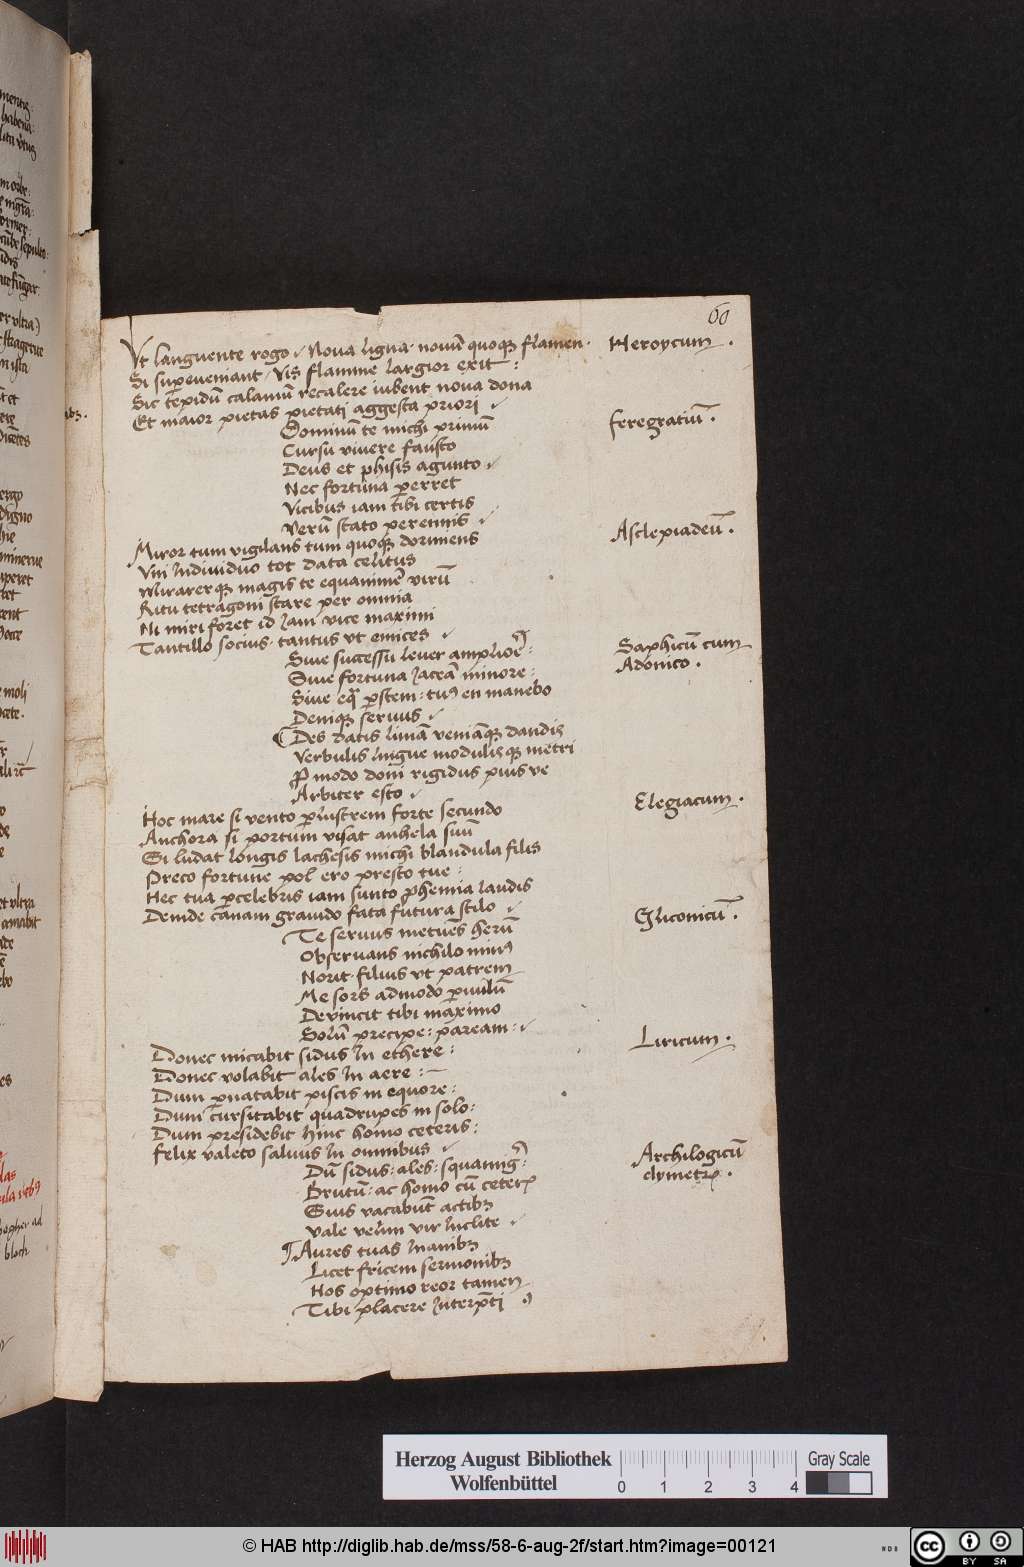 60
Vt languente rogo / Noua ligna · nouū quoqꝫ flamen · Heroycum .
Si supeueniant / Vis flamme largior exit :
Sic tepidū calamū recalere iubent noua dona
Et maior pietas pietati aggesta priori /
Dominū te michi primū feregratiū .
Cursu viuere fausto
Deus et phisis agunto /
Nec fortuna perret
Vicibus iam tibi certis
Verū stato perennis /
Miror tum vigilans tum quoqꝫ dormiens Asclepiadeū .
Vni Indiuiduo tot data celitus
Mirarerqꝫ magis te equanimē virū
Ritu tetragoni stare per omnia
Ni miri foret id Jam vice maximi
Tantillo socius · tantus vt emices /
Siue successu leuer : Saphicū cum
Siue fortuna Jaceā minore : Adonico .
Siue eqͣ pstem : tuꝰ en manebo
Deniqꝫ seruus /
Des datis limā veniāqꝫ dandis
Verbulis lingue modulisqꝫ metri
Ꝓ modo doni rigidus pius ve
Arbiter esto /
Hoc mare si vento plustrem forte secundo Elegiacum .
Anchora si portum visat anhela suū
Si ludat longis lachesis michi blandula filis
Preco fortune pol ero presto tue :
Hec tua pcelebris iam sunto phemia laudis
Deinde canam grauido fata futura stilo /
Te seruus metuēs herū Gliconicū .
Obseruans nichilo minꝰ
Norit · filius vt patrem
Me sors admodo
Deuincit tibi maximo
Solū precipe : paream : /
Donec micabit sidus In ethere : Liricum .
Donec volabit ales In aere : —
Dum pnatabit piscis in equore :
Dum cursitabit quadrupes in solo :
Dum presidebit hinc homo ceteris :
felix valeto saluus In omnibus /
Dū sidus : ales : squamigꝰ : Archilogicū
Brutū : ac homo cū ceterꝭ dymetrꝭ .
Suis vacabūt actibꝫ
Vale velim vir Inclite /
¶ Aures tuas Inanibꝫ
Licet fricem sermonibꝫ
Hos optimo reor tamen
Tibi placere Interpti
Herzog August Bibliothek
Wolfenbüttel
0 1 2 3 4
Gray Scale
© HAB http://diglib.hab.de/mss/58-6-aug-2f/start.htm?image=00121
cc BY SA